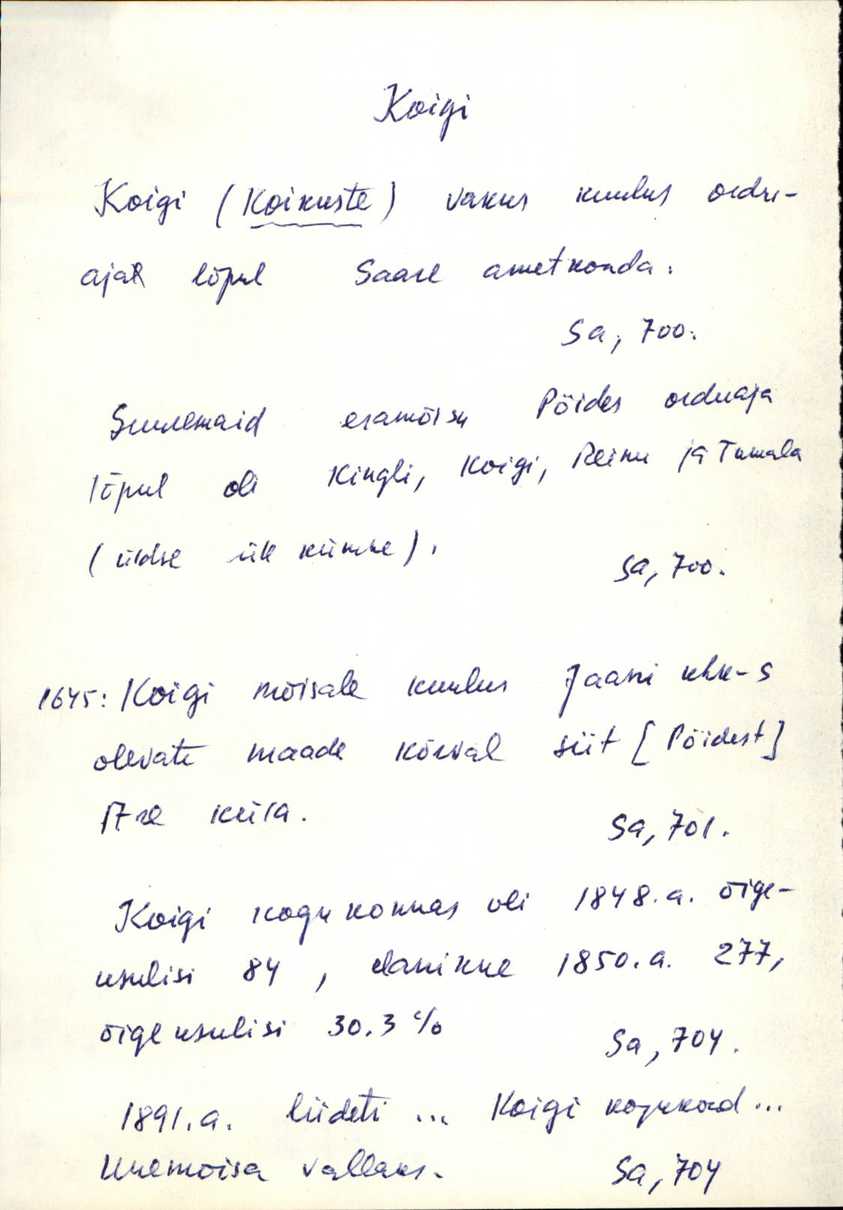 Koigi
Koigi (Koikuste) vakus kuulus ordu-
ajal lõpul Saare ametkonda.
Sa, 700.
Suuremaid eramõisu Pöides orduaja
lõpul oli Kingli, Koigi, Reinu ja Tumala
(üldse üle kümne).
Sa, 700.
1645: Koigi mõisale kuulus Jaani khk-s
olevate maade kõrval siit [Pöidest]
17-ne küla.
Sa, 701.
Koigi kogukonnas oli 1848.a. õige-
usulisi 84, elanikke 1850.a. 277,
õigeusulisi 30.3 %
Sa, 704.
1891.a. liideti ... Koigi kogukond ...
Uuemõisa vallaks.
Sa, 704